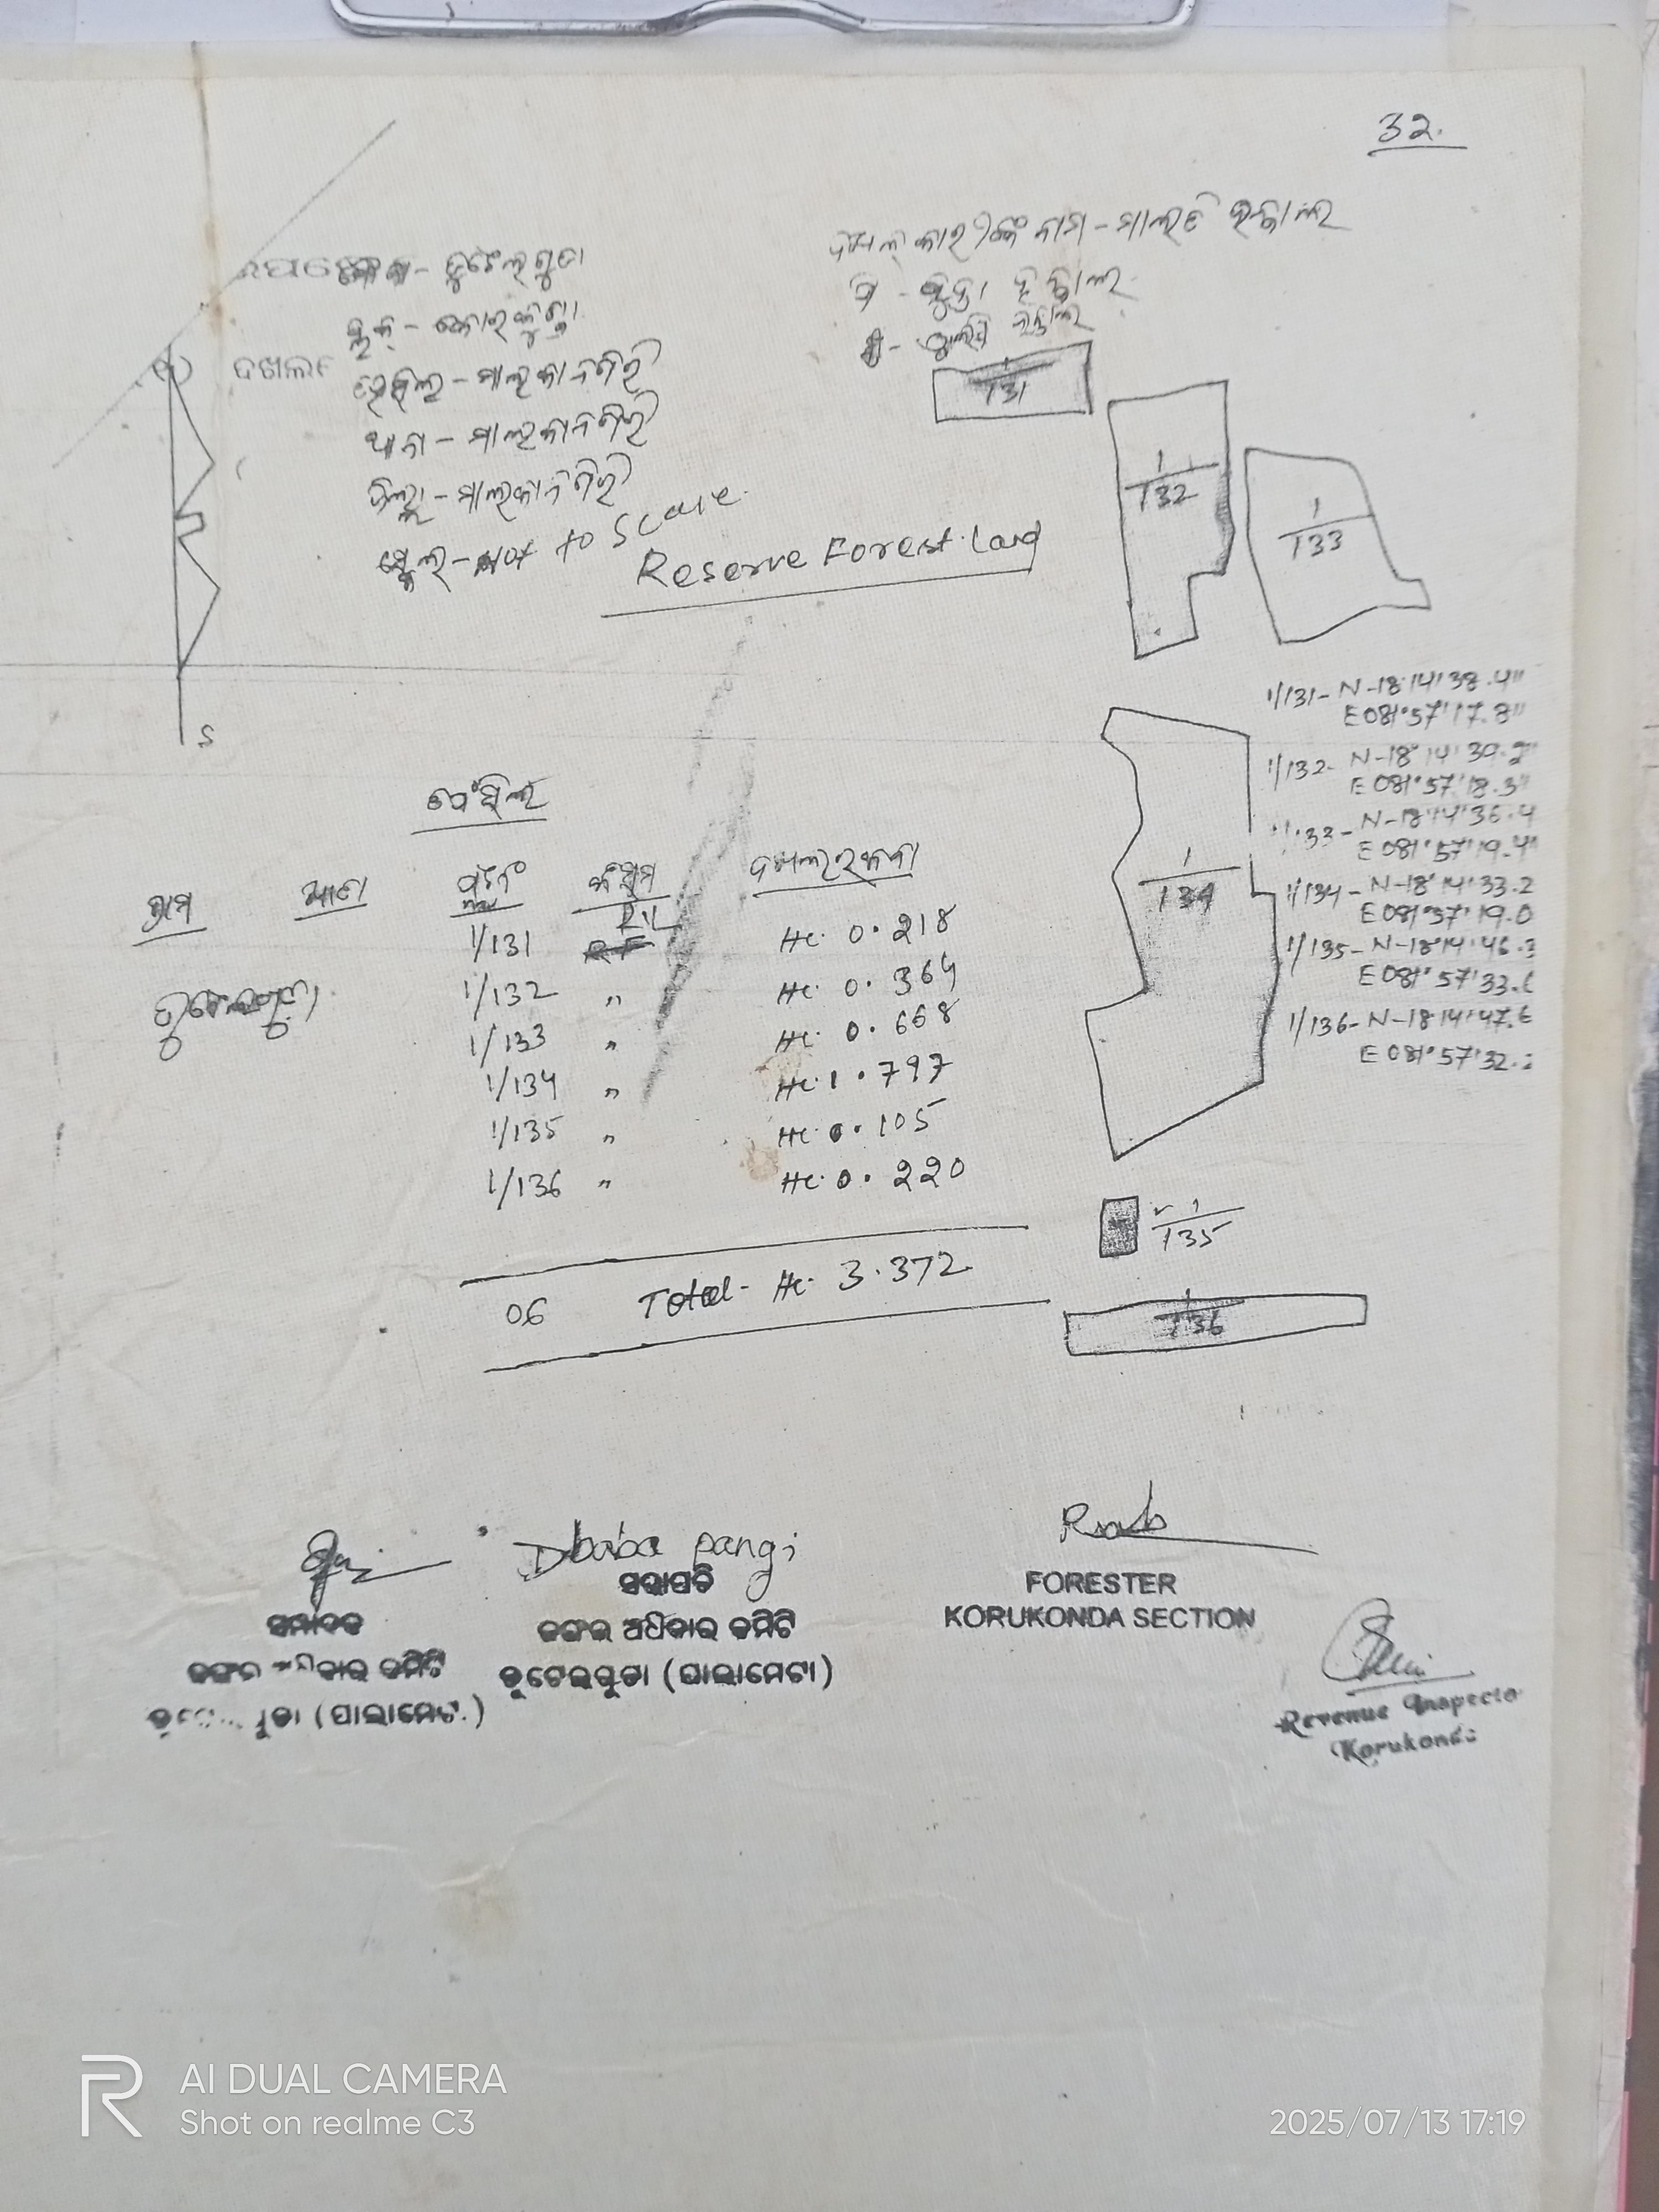 32.
ଦଖଲକାରୀଙ୍କ ନାମ - ମାଲତି ହନ୍ତାଲ
ବ୍ଲକ୍ - କୋରୁକୁଣ୍ଡା
ଦଖଲ
ତହସିଲ - ମାଲକାନଗିରି
ଥାନା - ମାଲକାନଗିରି
ଜିଲ୍ଲା - ମାଲକାନଗିରି
ସ୍କେଲ - Not to Scale
Reserve Forest Land
1/131
1/132
1/133
1/134
1/135
1/136
1/131- N-18°14'38.4"
E 081°57'17.8"
1/132- N-18°14'39.2"
E 081°57'18.3"
1/133- N-18°14'36.4
E 081°57'19.4"
1/134- N-18°14'33.2
E 081°57'19.0
1/135- N-18°14'46.3
E 081°57'33.
1/136- N-18°14'47.6
E 081°57'32.
S
ଗ୍ରାମ ଖାତା ପ୍ଲଟନଂ କିସମ ଦଖଲ ରକବା
1/131 Hc. 0.218
1/132 " Hc. 0.364
1/133 " Hc. 0.668
1/134 " Hc. 1.797
1/135 " Hc. 0.105
1/136 " Hc. 0.220
06 Total- Hc. 3.372
Dbaba pangi
ସଭାପତି
ଜଙ୍ଗଲ ଅଧିକାର କମିଟି
ତୁଟେଲଗୁଡା (ପାଲାମେଟା)
ସମ୍ପାଦକ
ଜଙ୍ଗଲ ଅଧିକାର କମିଟି
(ପାଲାମେଟା)
FORESTER
KORUKONDA SECTION
Revenue Inspecto
Korukonda
AI DUAL CAMERA
Shot on realme C3
2025/07/13 17:19